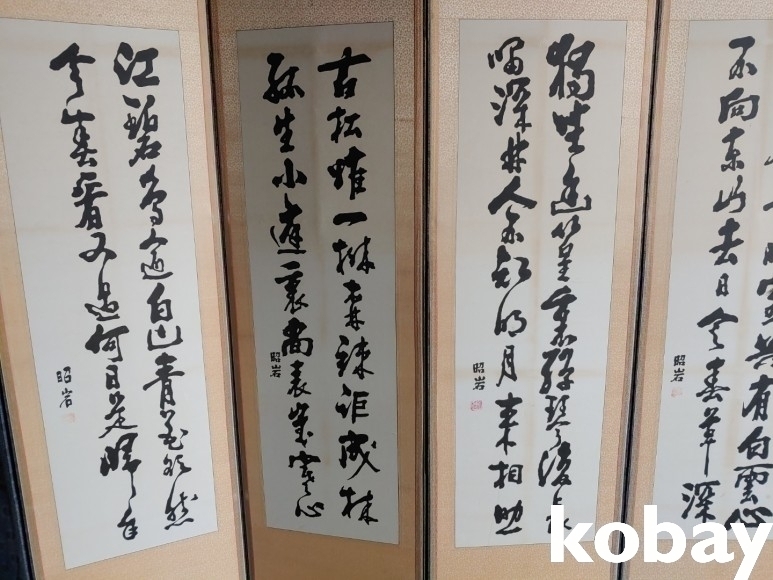 有白雲心
不向東山去日令春草深
昭岩
獨坐幽篁裏彈琴復長
嘯深林人不知明月來相照
昭岩
古松惟一株森竦詎成林
孤生小庭裏尚表歲寒心
昭岩
江碧鳥逾白山青花欲然
今春看又過何日是歸年
昭岩
kobay